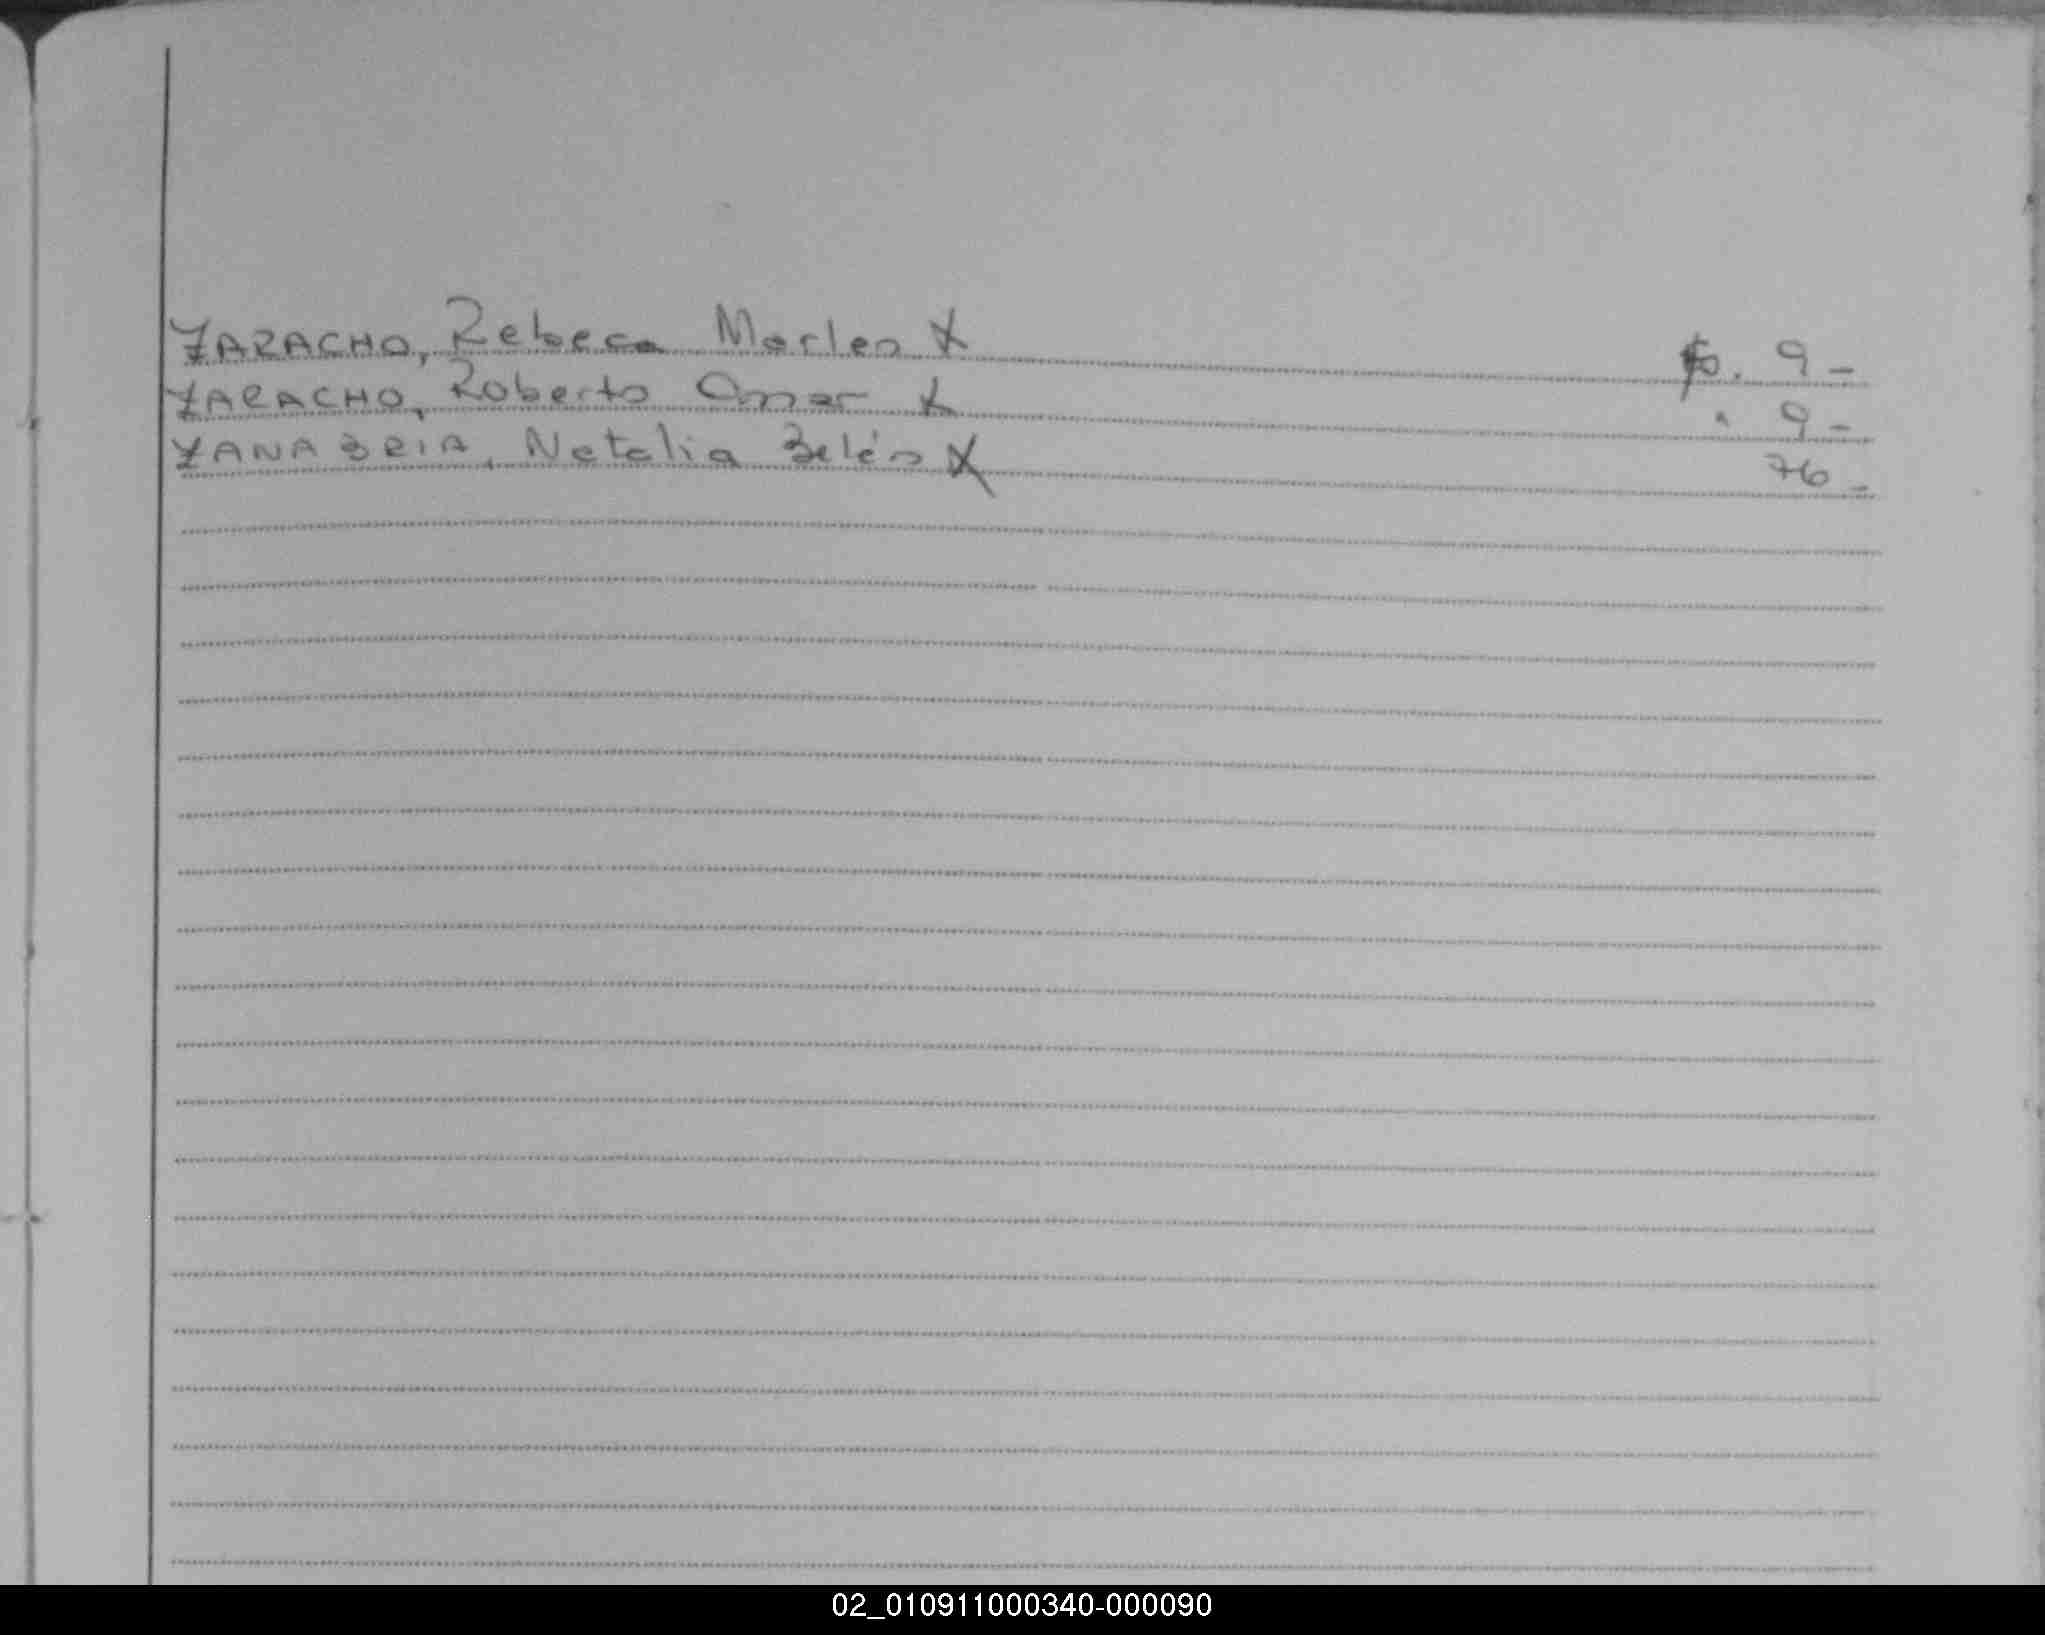 ZARACHO, Rebeca Marlen X fo. 9-
ZARACHO, Roberto Omar X " 9-
ZANABRIA, Natalia Belén X 76-
02_010911000340-000090